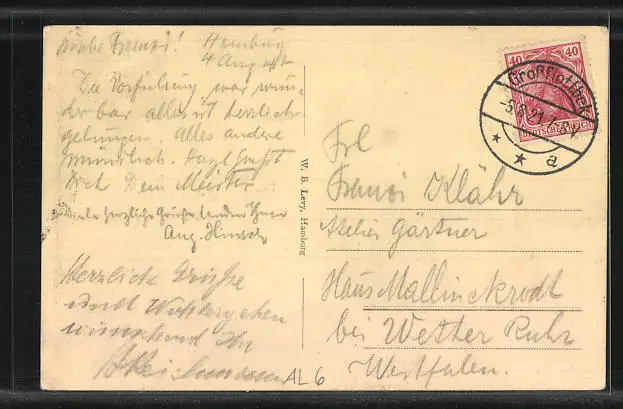 Liebe Franzi! Hamburg
4 August
Die Vorführung war wun-
der bar alles ist herrlich
gelungen. Alles andere
mündlich.
Dich Dein Meister
Viele herzliche Grüße senden Ihnen
Aug.
Herzliche Grüße
und Wohlergehen
wünschend Ihr
AL 6
W. B. Levy, Hamburg
40 40
DEUTSCHES REICH
Großflottbek
-5.8.21.7-8
* * a
Frl
Franzi Klähr
Atelier Gärtner
Haus Mallinckrodt
bei Wetter Ruhr
Westfalen.